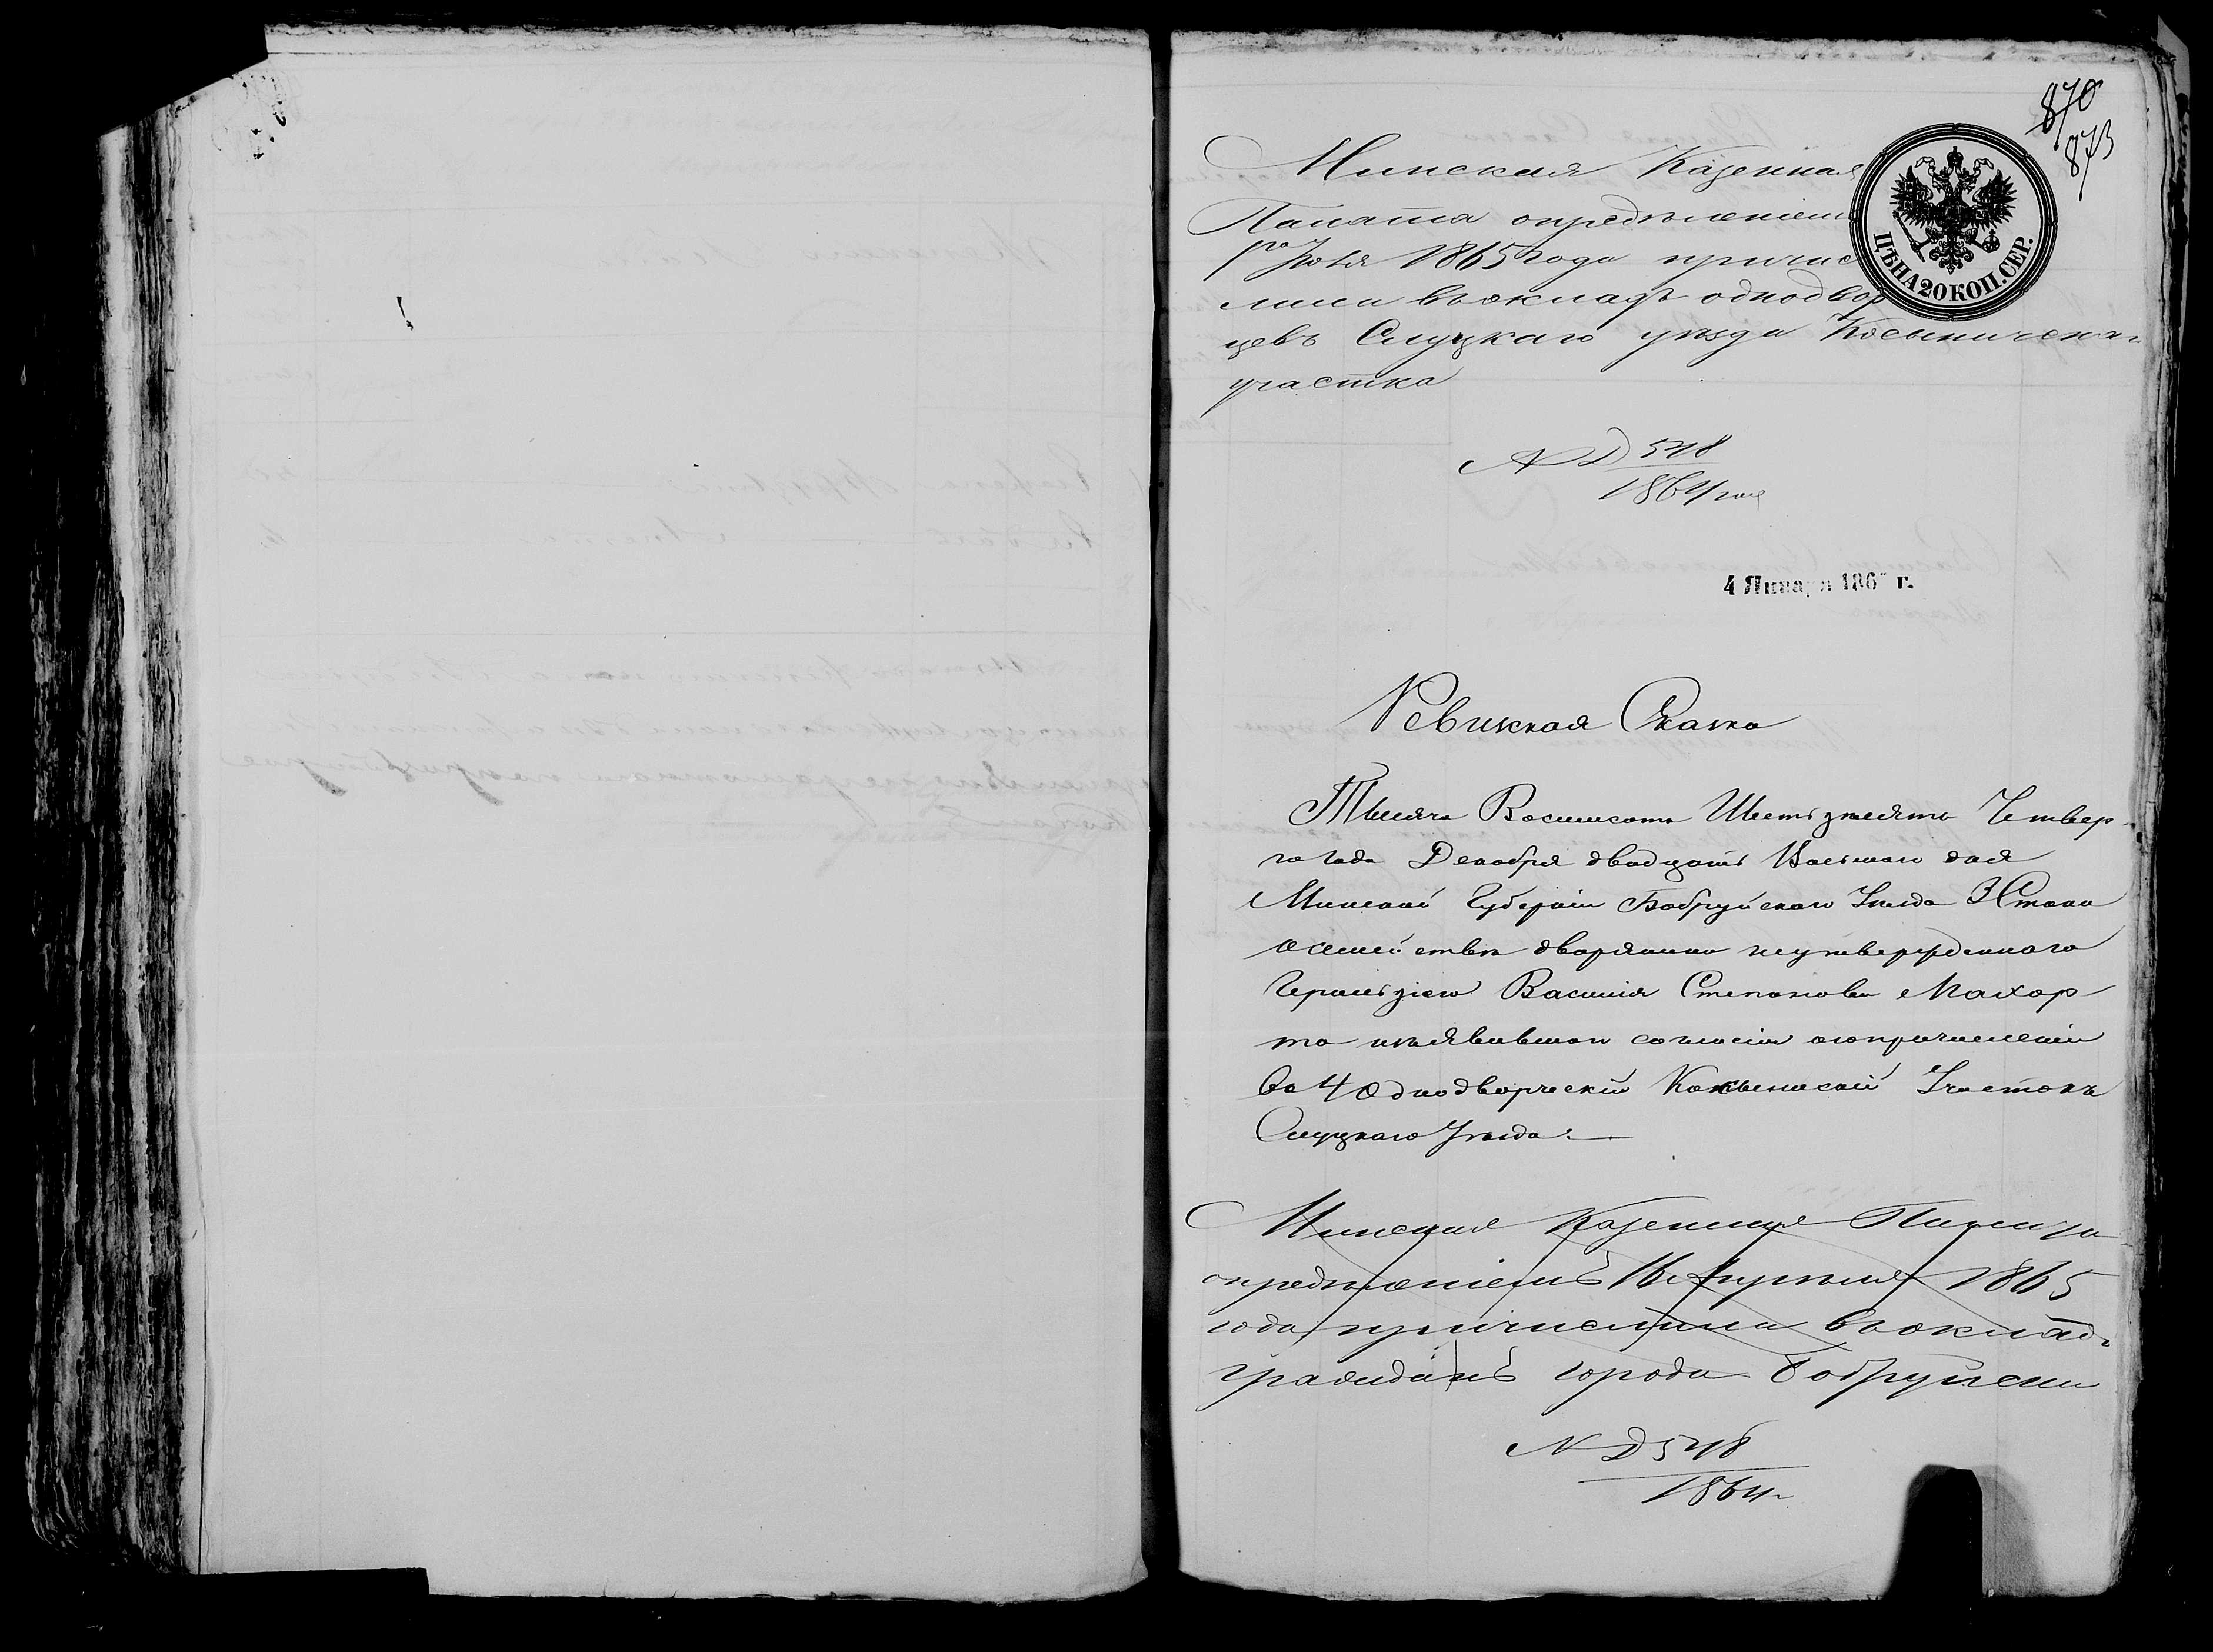 870
873
Минская Казенная
Палата определенiем
1го Iюля 1865 года причис
лила въ окладъ однодвор
цевъ Слуцкаго уезда
участка
ЦѢНА 20 КОП. СЕР.
№ Д 548
1864 год
4 Января 186 г.
Ревизкая Скаска
Тысяча Восемьсотъ Шестьдесятъ Четвер
го года Декабря двадцать Восьмаго дня
Минской Губернiи Бобруйскаго Уезда 3 Стана
о семействѣ дворянина неутвержденнаго
Герольдiею Василiя Степанова Махор
та изъявившаго согласiи о причисленiи
в 4 Однодворческiй Участокъ
Слуцкаго Уезда.
Минская Казенная Палата
определенiемъ 16 Апреля 1865
года причислила въ окладъ
гражданъ города Бобруйска
№ Д 548
1864 г